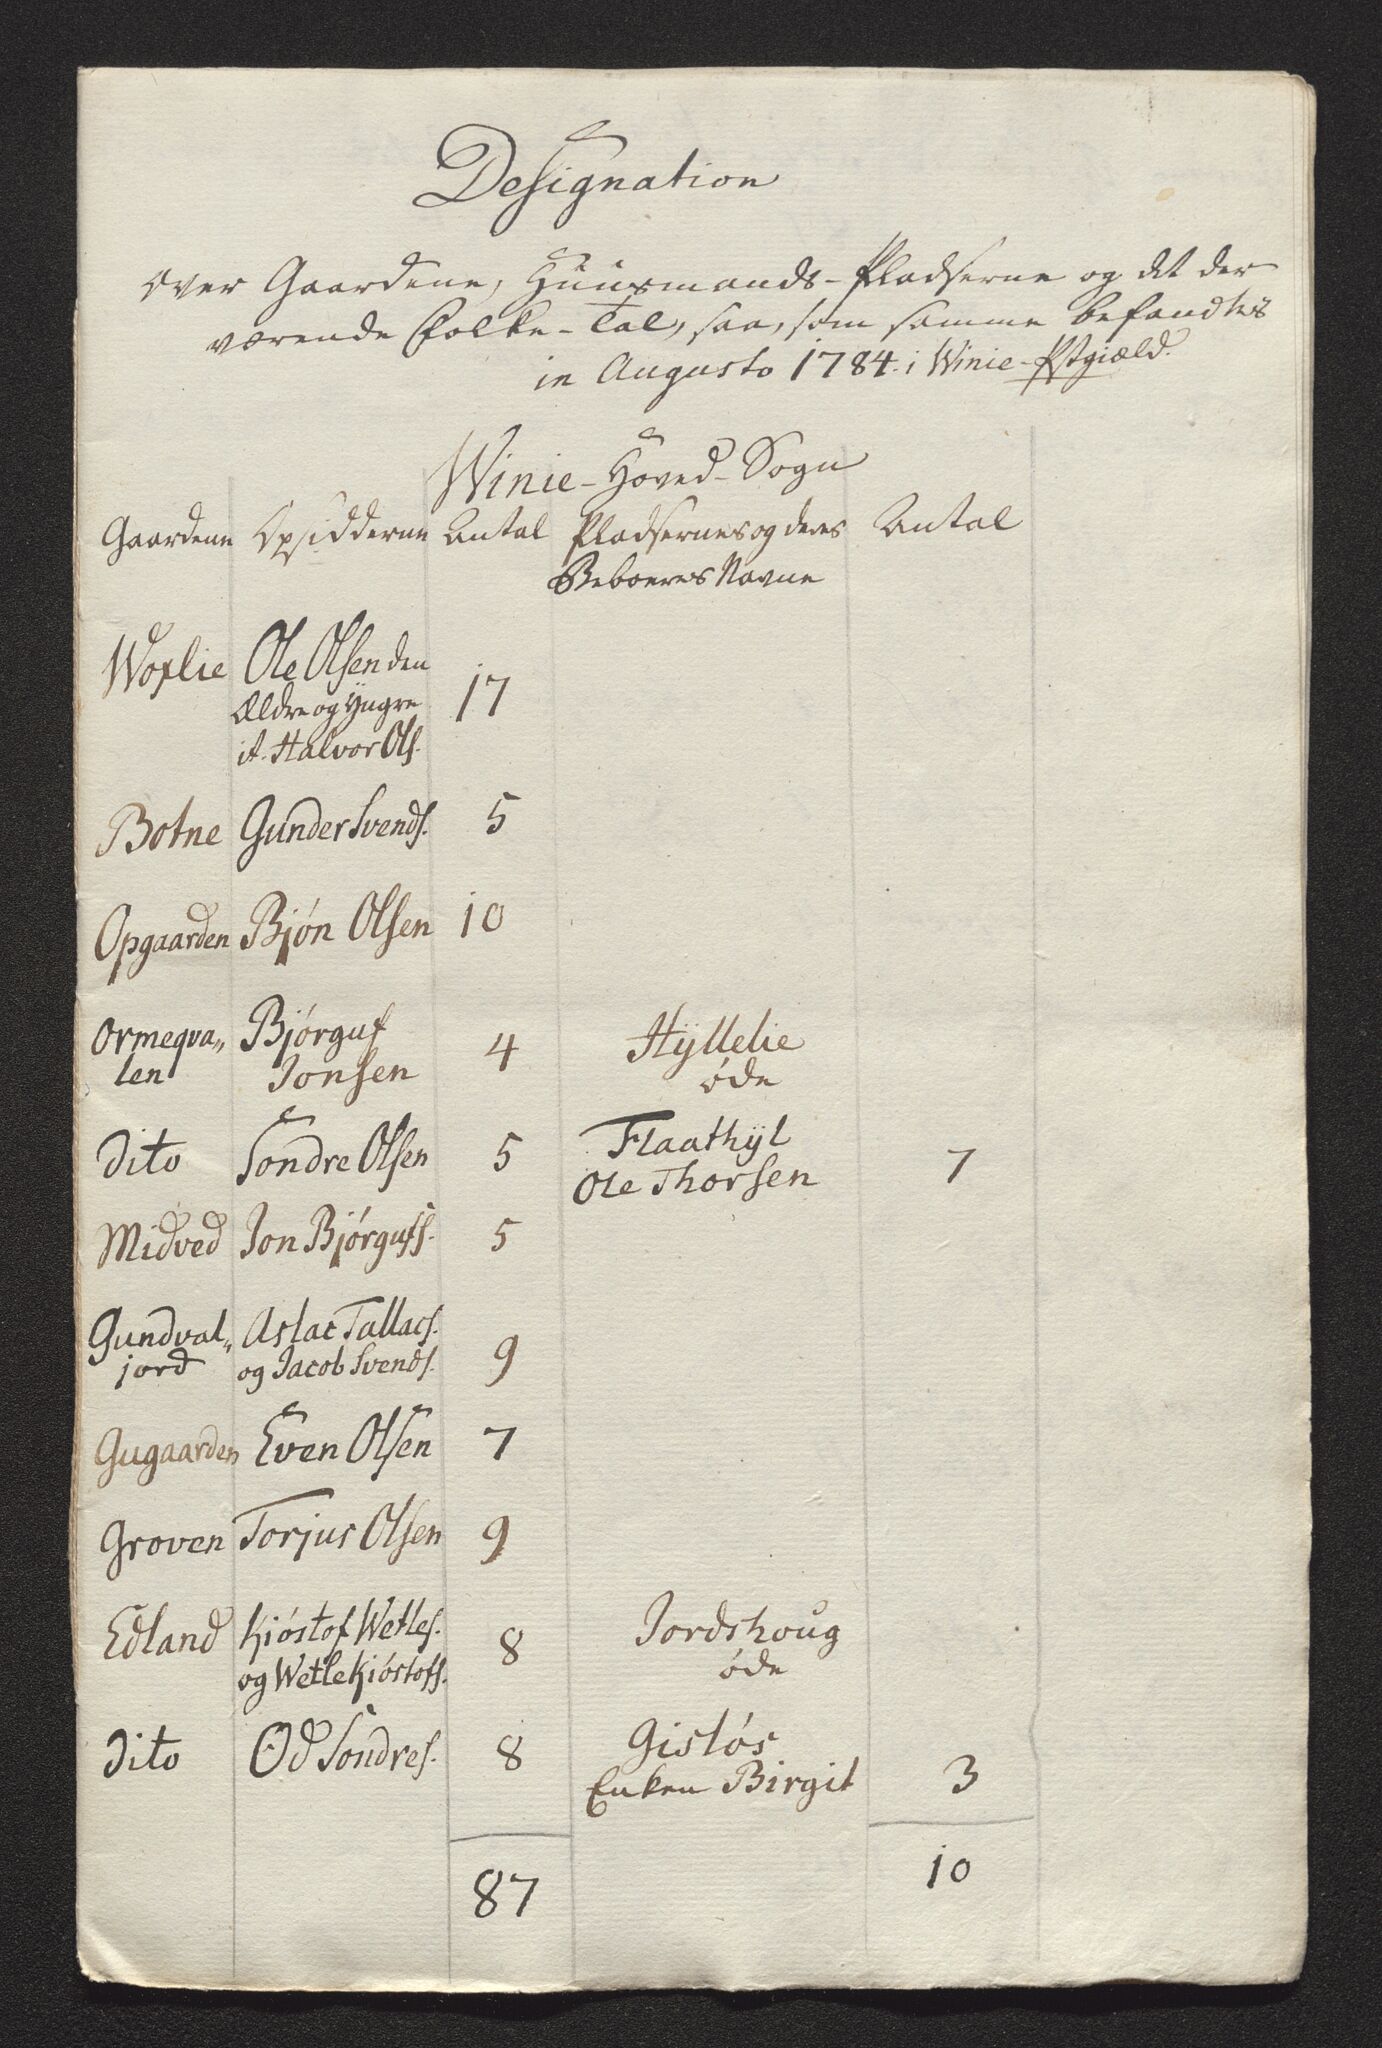 Designation
over Gaardene, Huusmands-Pladserne og det der
værende Folke-Tal, saa, som samme befandtes
in Augusto 1784. i Winie-Pstgiæld.
Winie-Hoved-Sogn
Gaardene Opsidderne Antal Pladsernes og deres Antal
Beboeres Navne
Woxlie Ole Olsen den
Ældre og Yngre 17
it. Halvor Ols.
Botne Gunder Svends. 5
Opgaarden Bjøn Olsen 10
Ormeqva„ Bjørguf 4 Hÿllelie
len Jonsen øde
Dito Sondre Olsen 5 Flaathÿl 7
Ole Thorsen
Midved Jon Bjørgufs. 5
Gundval„ Aslac Tallacs. 9
jord og Jacob Svends.
Gugaarden Even Olsen 7
Groven Torjus Olsen 9
Edland Kiøstof Wetles. 8 Jordshoug
og Wetle Kiøstofs. øde
Dito Od Sondres. 8 Gisløs
Enken Birgit 3
87 10